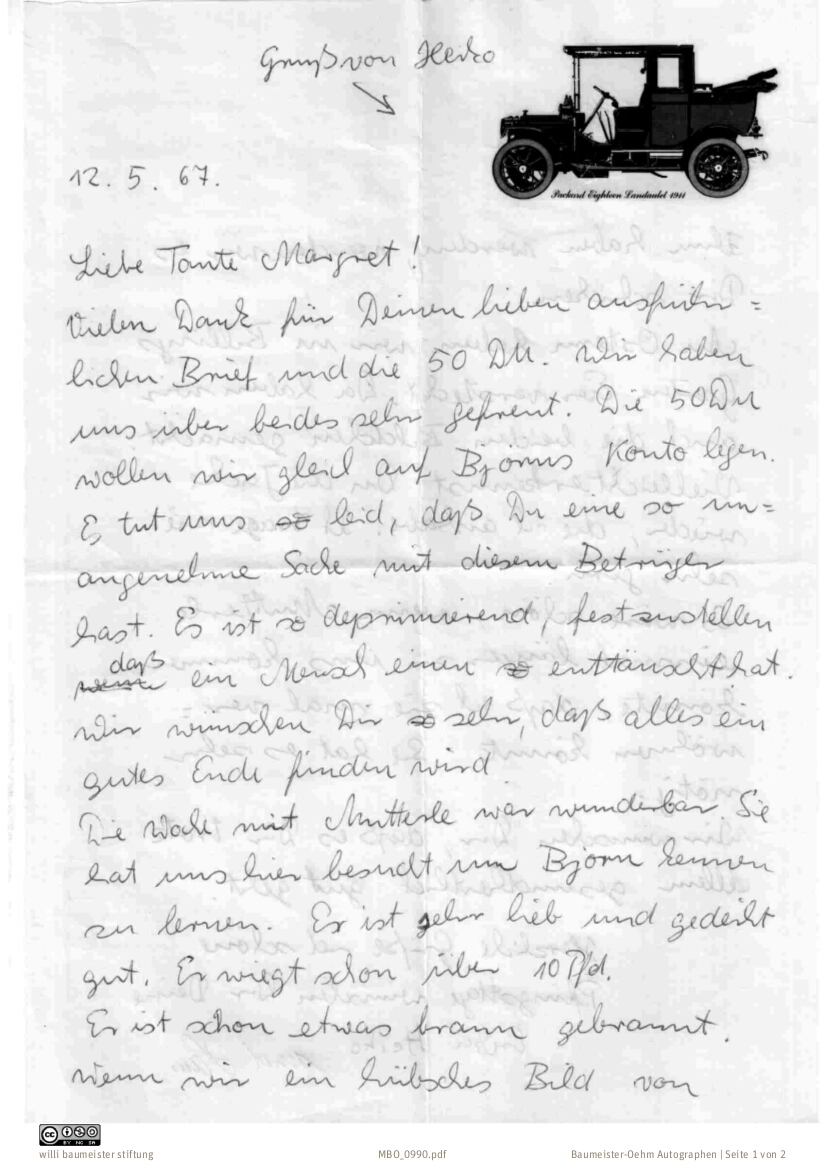 Gruß von Heiko
12. 5. 67.
Packard Eighteen Landaulet 1911
Liebe Tante Margret!
Vielen Dank für Deinen lieben ausführ=
lichen Brief und die 50 DM. Wir haben
uns über beides sehr gefreut. Die 50 DM
wollen wir gleich auf Björns Konto legen.
Es tut uns so leid, daß Du eine so un=
angenehme Sache mit diesem Betrüger
hast. Es ist so deprimierend, festzustellen
daß
wenn ein Mensch einen so enttäuscht hat.
Wir wünschen Dir so sehr, daß alles ein
gutes Ende finden wird
Die Woche mit Mutterle war wunderbar. Sie
hat uns hier besucht um Björn kennen
zu lernen. Er ist sehr lieb und gedeiht
gut. Er wiegt schon über 10 Pfd.
Er ist schon etwas braun gebrannt.
Wenn wir ein hübsches Bild von
willi baumeister stiftung
MBO_0990.pdf
Baumeister-Oehm Autographen | Seite 1 von 2